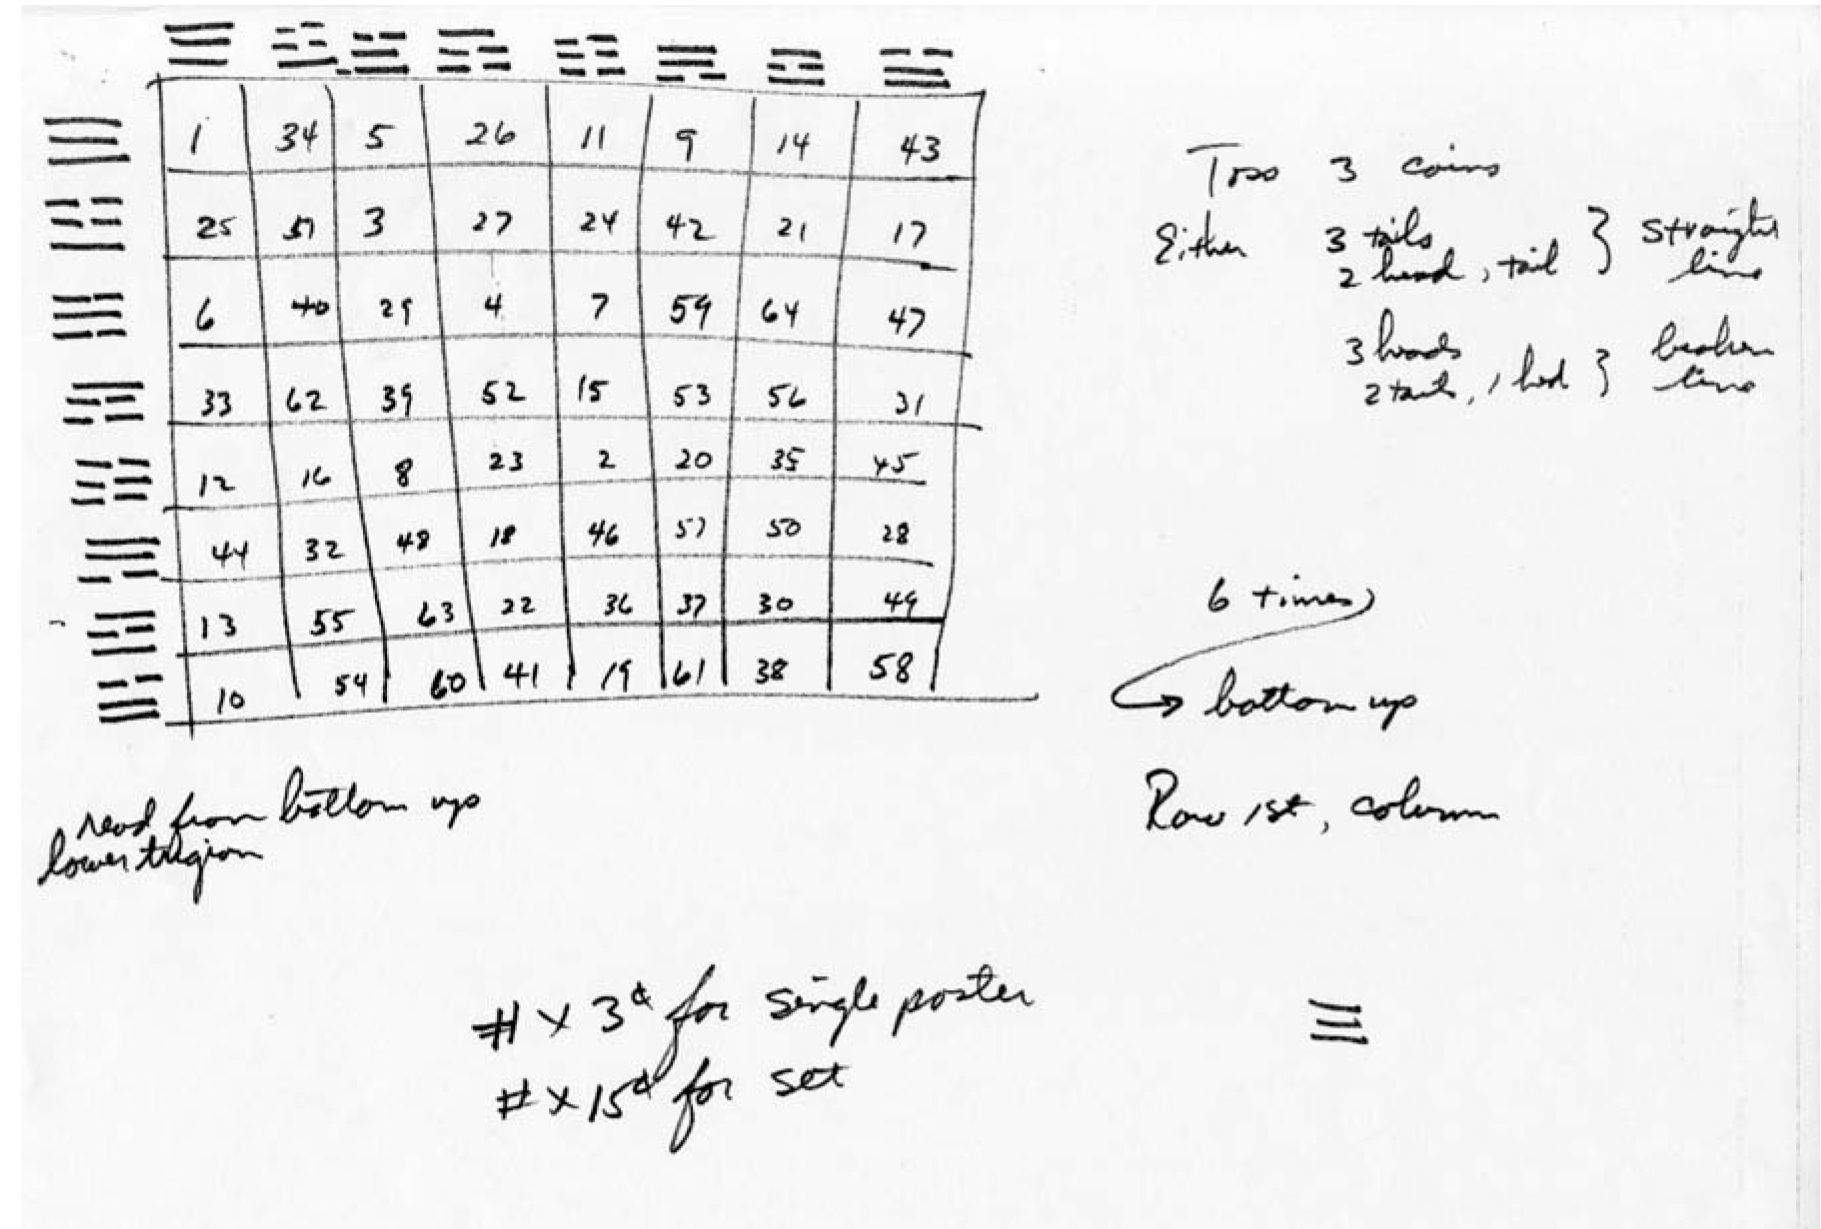 1 34 5 26 11 9 14 43
25 51 3 27 24 42 21 17
6 40 29 4 7 59 64 47
33 62 39 52 15 53 56 31
12 16 8 23 2 20 35 45
44 32 48 18 46 57 50 28
13 55 63 22 36 37 30 49
10 54 60 41 19 61 38 58
read from bottom up
lower trigion
Toss 3 coins
Either 3 tails } straight
2 head, tail line
3 heads } broken
2 tails, 1 hed line
6 times
bottom up
Row 1st, column
# X 3¢ for single poster
# X 15¢ for set